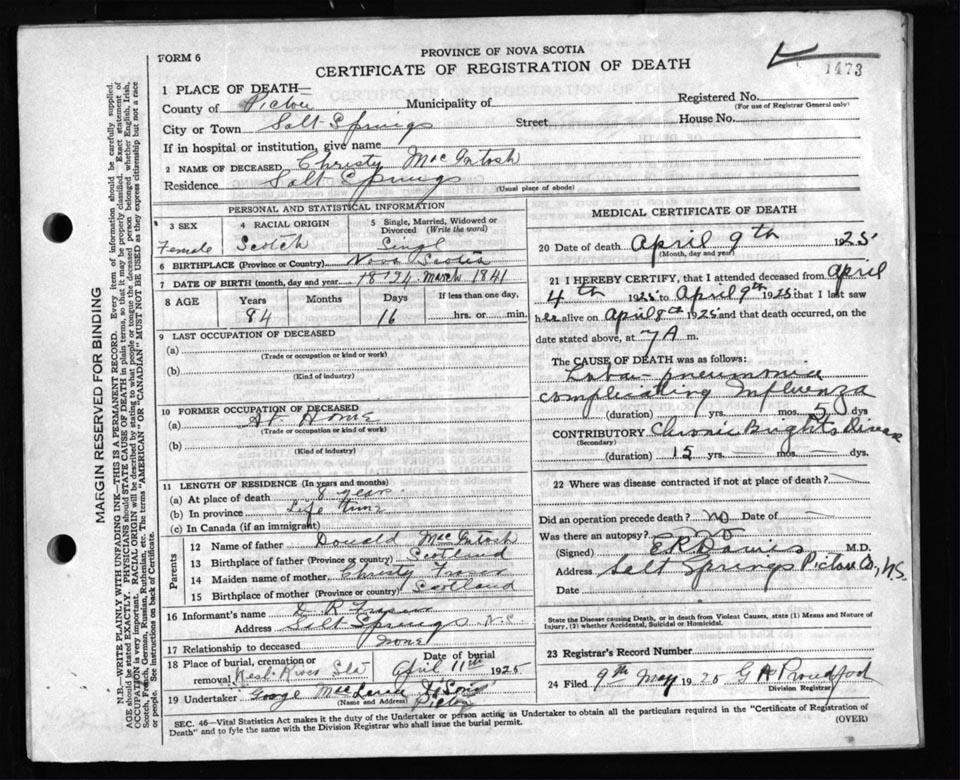 FORM 6
PROVINCE OF NOVA SCOTIA
CERTIFICATE OF REGISTRATION OF DEATH
1473
1 PLACE OF DEATH—
County of Pictou Municipality of
Registered No.
(For use of Registrar General only)
City or Town Salt Springs Street House No.
If in hospital or institution, give name
2 NAME OF DECEASED Christy MacIntosh
Residence Salt Springs
(Usual place of abode)
PERSONAL AND STATISTICAL INFORMATION
3 SEX 4 RACIAL ORIGIN 5 Single, Married, Widowed or Divorced (Write the word)
Female Scotch Singl
6 BIRTHPLACE (Province or Country) Nova Scotia
7 DATE OF BIRTH (month, day and year) 24 March 1841
8 AGE Years Months Days If less than one day,
84 16 hrs. or min.
9 LAST OCCUPATION OF DECEASED
(a)
(Trade or occupation or kind of work)
(b)
(Kind of industry)
10 FORMER OCCUPATION OF DECEASED
(a) At Home
(Trade or occupation or kind of work)
(b)
(Kind of industry)
11 LENGTH OF RESIDENCE (In years and months)
(a) At place of death 8 year
(b) In province Life time
(c) In Canada (if an immigrant)
Parents
12 Name of father Donald MacIntosh
13 Birthplace of father (Province or country) Scotland
14 Maiden name of mother Christy Fraser
15 Birthplace of mother (Province or country) Scotland
16 Informant's name D. R. Fraser
Address Salt Springs N.S
17 Relationship to deceased None
18 Place of burial, cremation or removal Date of burial
West River Sta April 11th 1925
19 Undertaker George MacLaren & Sons
(Name and Address) Pictou
MEDICAL CERTIFICATE OF DEATH
20 Date of death April 9th 1925
(Month, day and year)
21 I HEREBY CERTIFY, that I attended deceased from April
4th 1925 to April 9th 1925 that I last saw
her alive on April 8th 1925 and that death occurred, on
date stated above, at 7 A m.
The CAUSE OF DEATH was as follows:
Lobar pneumonia
complicating Influenza
(duration) yrs. mos. 5 dys
CONTRIBUTORY Chronic Brights Disease
(Secondary)
(duration) 15 yrs. — mos. — dys.
22 Where was disease contracted if not at place of death? —
Did an operation precede death? No Date of —
Was there an autopsy? No
(Signed) E R Davis M.D.
Address Salt Springs Pictou Co., N.S.
Date
State the Disease causing Death, or in death from Violent Causes, state (1) Means and Nature of
Injury, (2) whether Accidental, Suicidal or Homicidal.
23 Registrar's Record Number
24 Filed 9th May 1925 G A Proudfoot
Division Registrar
SEC. 46—Vital Statistics Act makes it the duty of the Undertaker or person acting as Undertaker to obtain all the particulars required in the "Certificate of Registration of
Death" and to fyle the same with the Division Registrar who shall issue the burial permit.
(OVER)
MARGIN RESERVED FOR BINDING
N.B.—WRITE PLAINLY WITH UNFADING INK—THIS IS A PERMANENT RECORD. Every item of information should be carefully supplied.
AGE should be stated EXACTLY. PHYSICIANS should STATE CAUSE OF DEATH in plain terms, so that it may be properly classified. Exact statement of
OCCUPATION is very important. RACIAL ORIGIN will be described by stating to what people or tongue the deceased person belonged whether English, Irish,
Scotch, French, German, Russian, Ruthenian, etc. The terms "AMERICAN" OR "CANADIAN" MUST NOT BE USED as they express citizenship but not a race
or people. See instructions on back of Certificate.